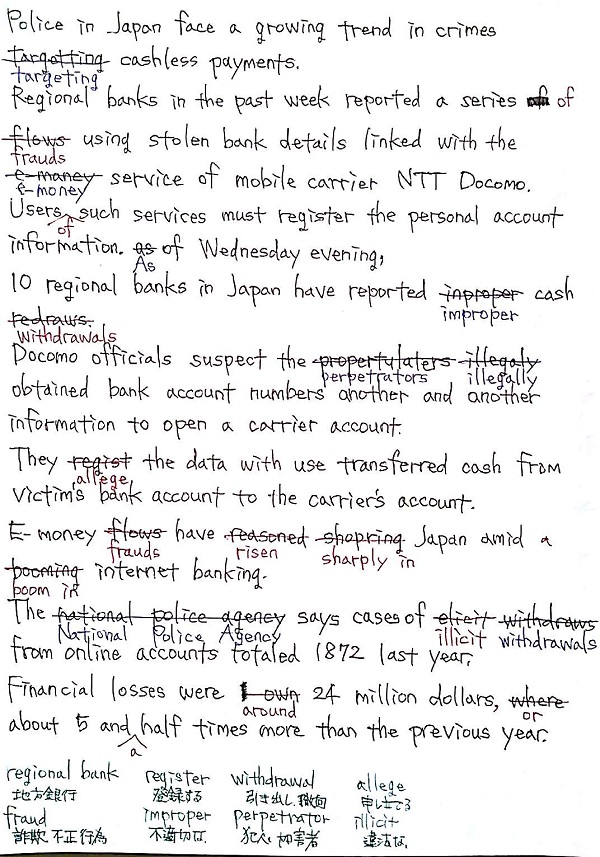 Police in Japan face a growing trend in crimes
targetting cashless payments.
targeting
Regional banks in the past week reported a series of
flows using stolen bank details linked with the
frauds
e-maney service of mobile carrier NTT Docomo.
e-money
Users such services must register the personal account
of
information. as of Wednesday evening,
As
10 regional banks in Japan have reported inproper cash
improper
redraws.
withdrawals
Docomo officials suspect the propertulaters illegaly
perpetrators illegally
obtained bank account numbers another and another
information to open a carrier account.
They regist the data with use transferred cash from
allege
victim's bank account to the carrier's account.
E-money flows have reasoned shopring Japan amid a
frauds risen sharply in
booming internet banking.
boom in
The national police agency says cases of elicit withdraws
National Police Agency illicit withdrawals
from online accounts totaled 1872 last year.
Financial losses were own 24 million dollars, where
around or
about 5 and half times more than the previous year.
a
regional bank register withdrawal allege
地方銀行 登録する 引き出し、撤回 申し立てる
fraud improper perpetrator illicit
詐欺、不正行為 不適切な 犯人、加害者 違法な